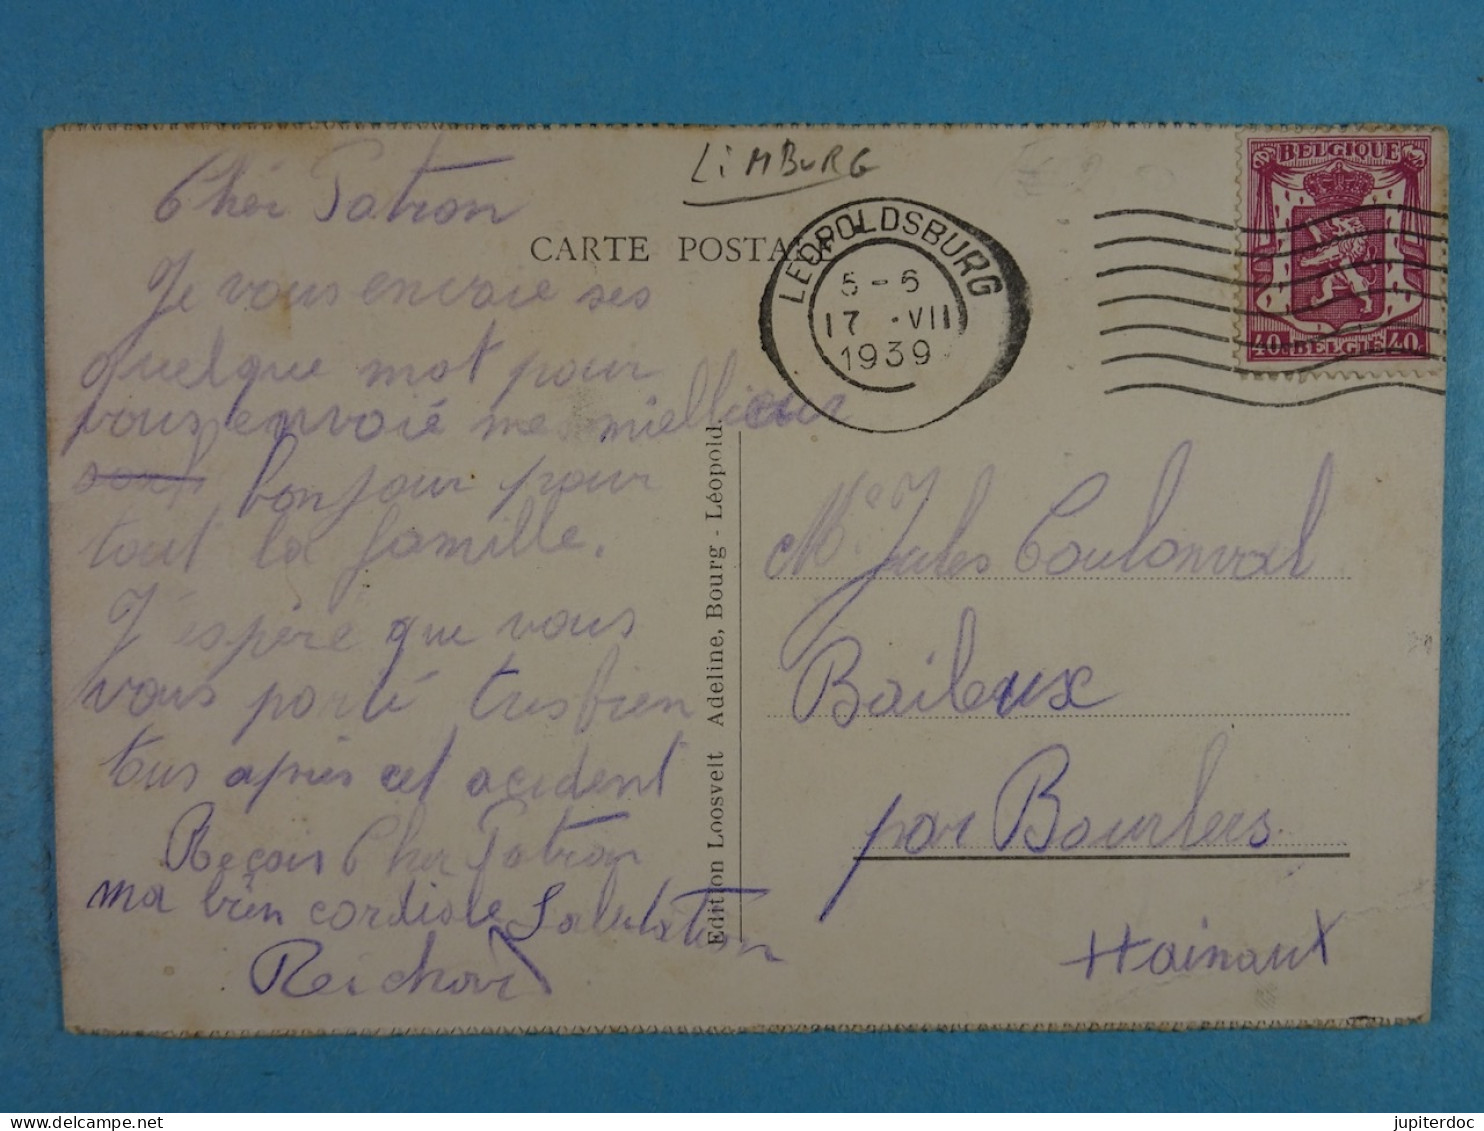 LiMBURG
CARTE POSTALE
LEOPOLDSBURG
5-6
17 . VII
1939
BELGIQUE
40c BELGIE 40c
Chér Patron
Je vous envoie ses
quelque mot pour
vous envoié me miellieur
bonjour pour
tout la famille.
J'éspère que vous
vous porté tres bien
tous après cet acident
Reçois Cher Patron
ma bien cordiale Salutation
Edition Loosvelt Adeline, Bourg - Léopold.
Mr Jules Coulonval
Baileux
par Bourlers
Hainaut
jupiterdoc